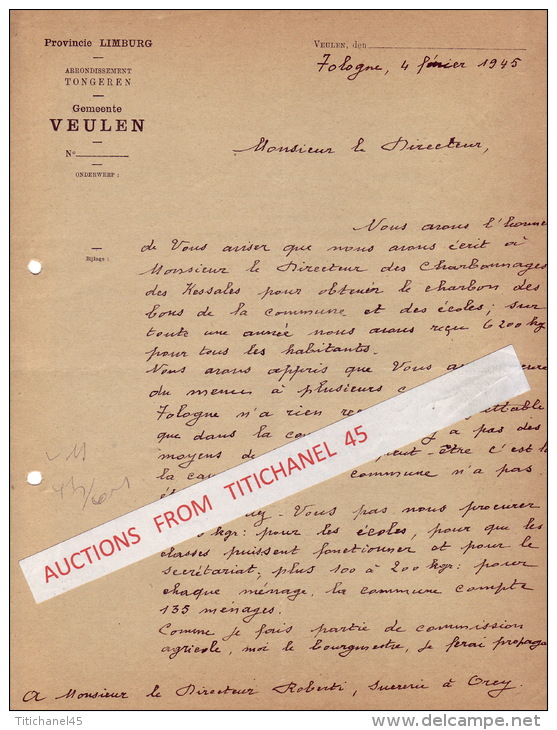 Provincie LIMBURG
ARRONDISSEMENT
TONGEREN
Gemeente
VEULEN
N°
ONDERWERP :
Bijlage :
VEULEN, den
Fologne, 4 février 1945
Monsieur le Directeur,
Nous avons l'honne
de Vous aviser que nous avons écrit à
Monsieur le Directeur des Charbonnages
des Kessales pour obtenir le charbon des
bons de la commune et des écoles; sur
toute une année nous avons reçu 6200 kg
pour tous les habitants.
Nous avons appris que Vous
du menu à plusieurs
Fologne n'a rien
que dans la y a pas des
moyens de peut-être c'est
la commune n'a pas
Vous pas nous procurer
kgr: pour les écoles, pour que les
classes puissent fonctionner et pour le
secrétariat; plus 100 à 200 kgr: pour
chaque ménage, la commune compte
135 ménages.
Comme je fais partie de commission
agricole, moi le bourgmestre, je ferai propaga
A Monsieur le Directeur Roberti, sucrerie à Orey.
AUCTIONS FROM TITICHANEL 45
Titichanel45
www.delcampe.net